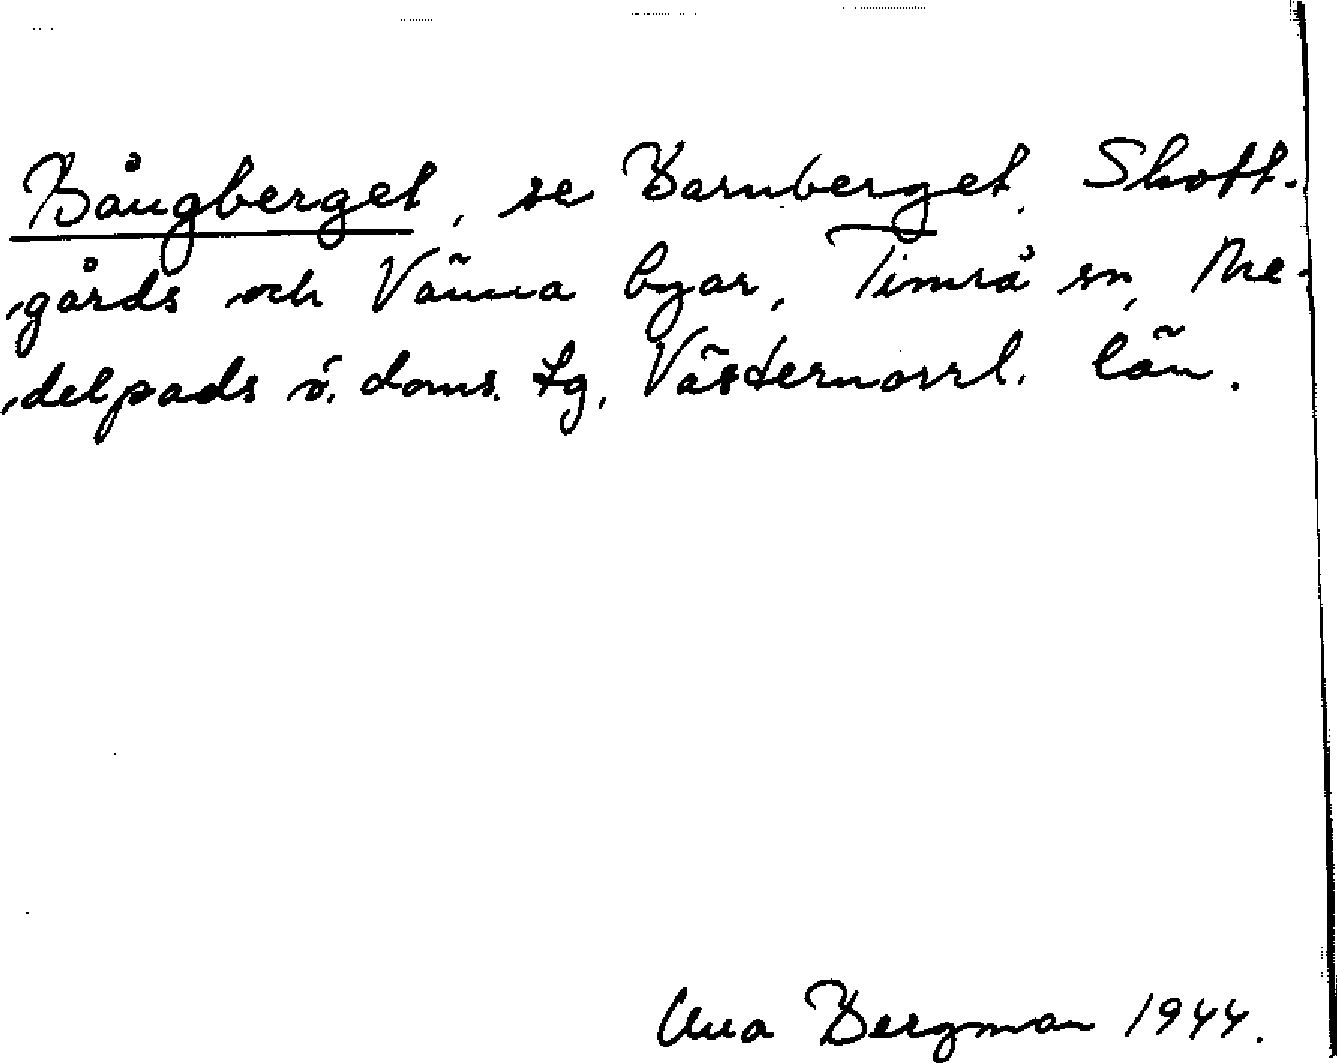 Bångberget, se Barnberget, Skott-
gårds och Vänna byar, Timrå sn, Me-
delpads ö. doms. tg, Västernorrl. län.
Ana Bergman 1944.